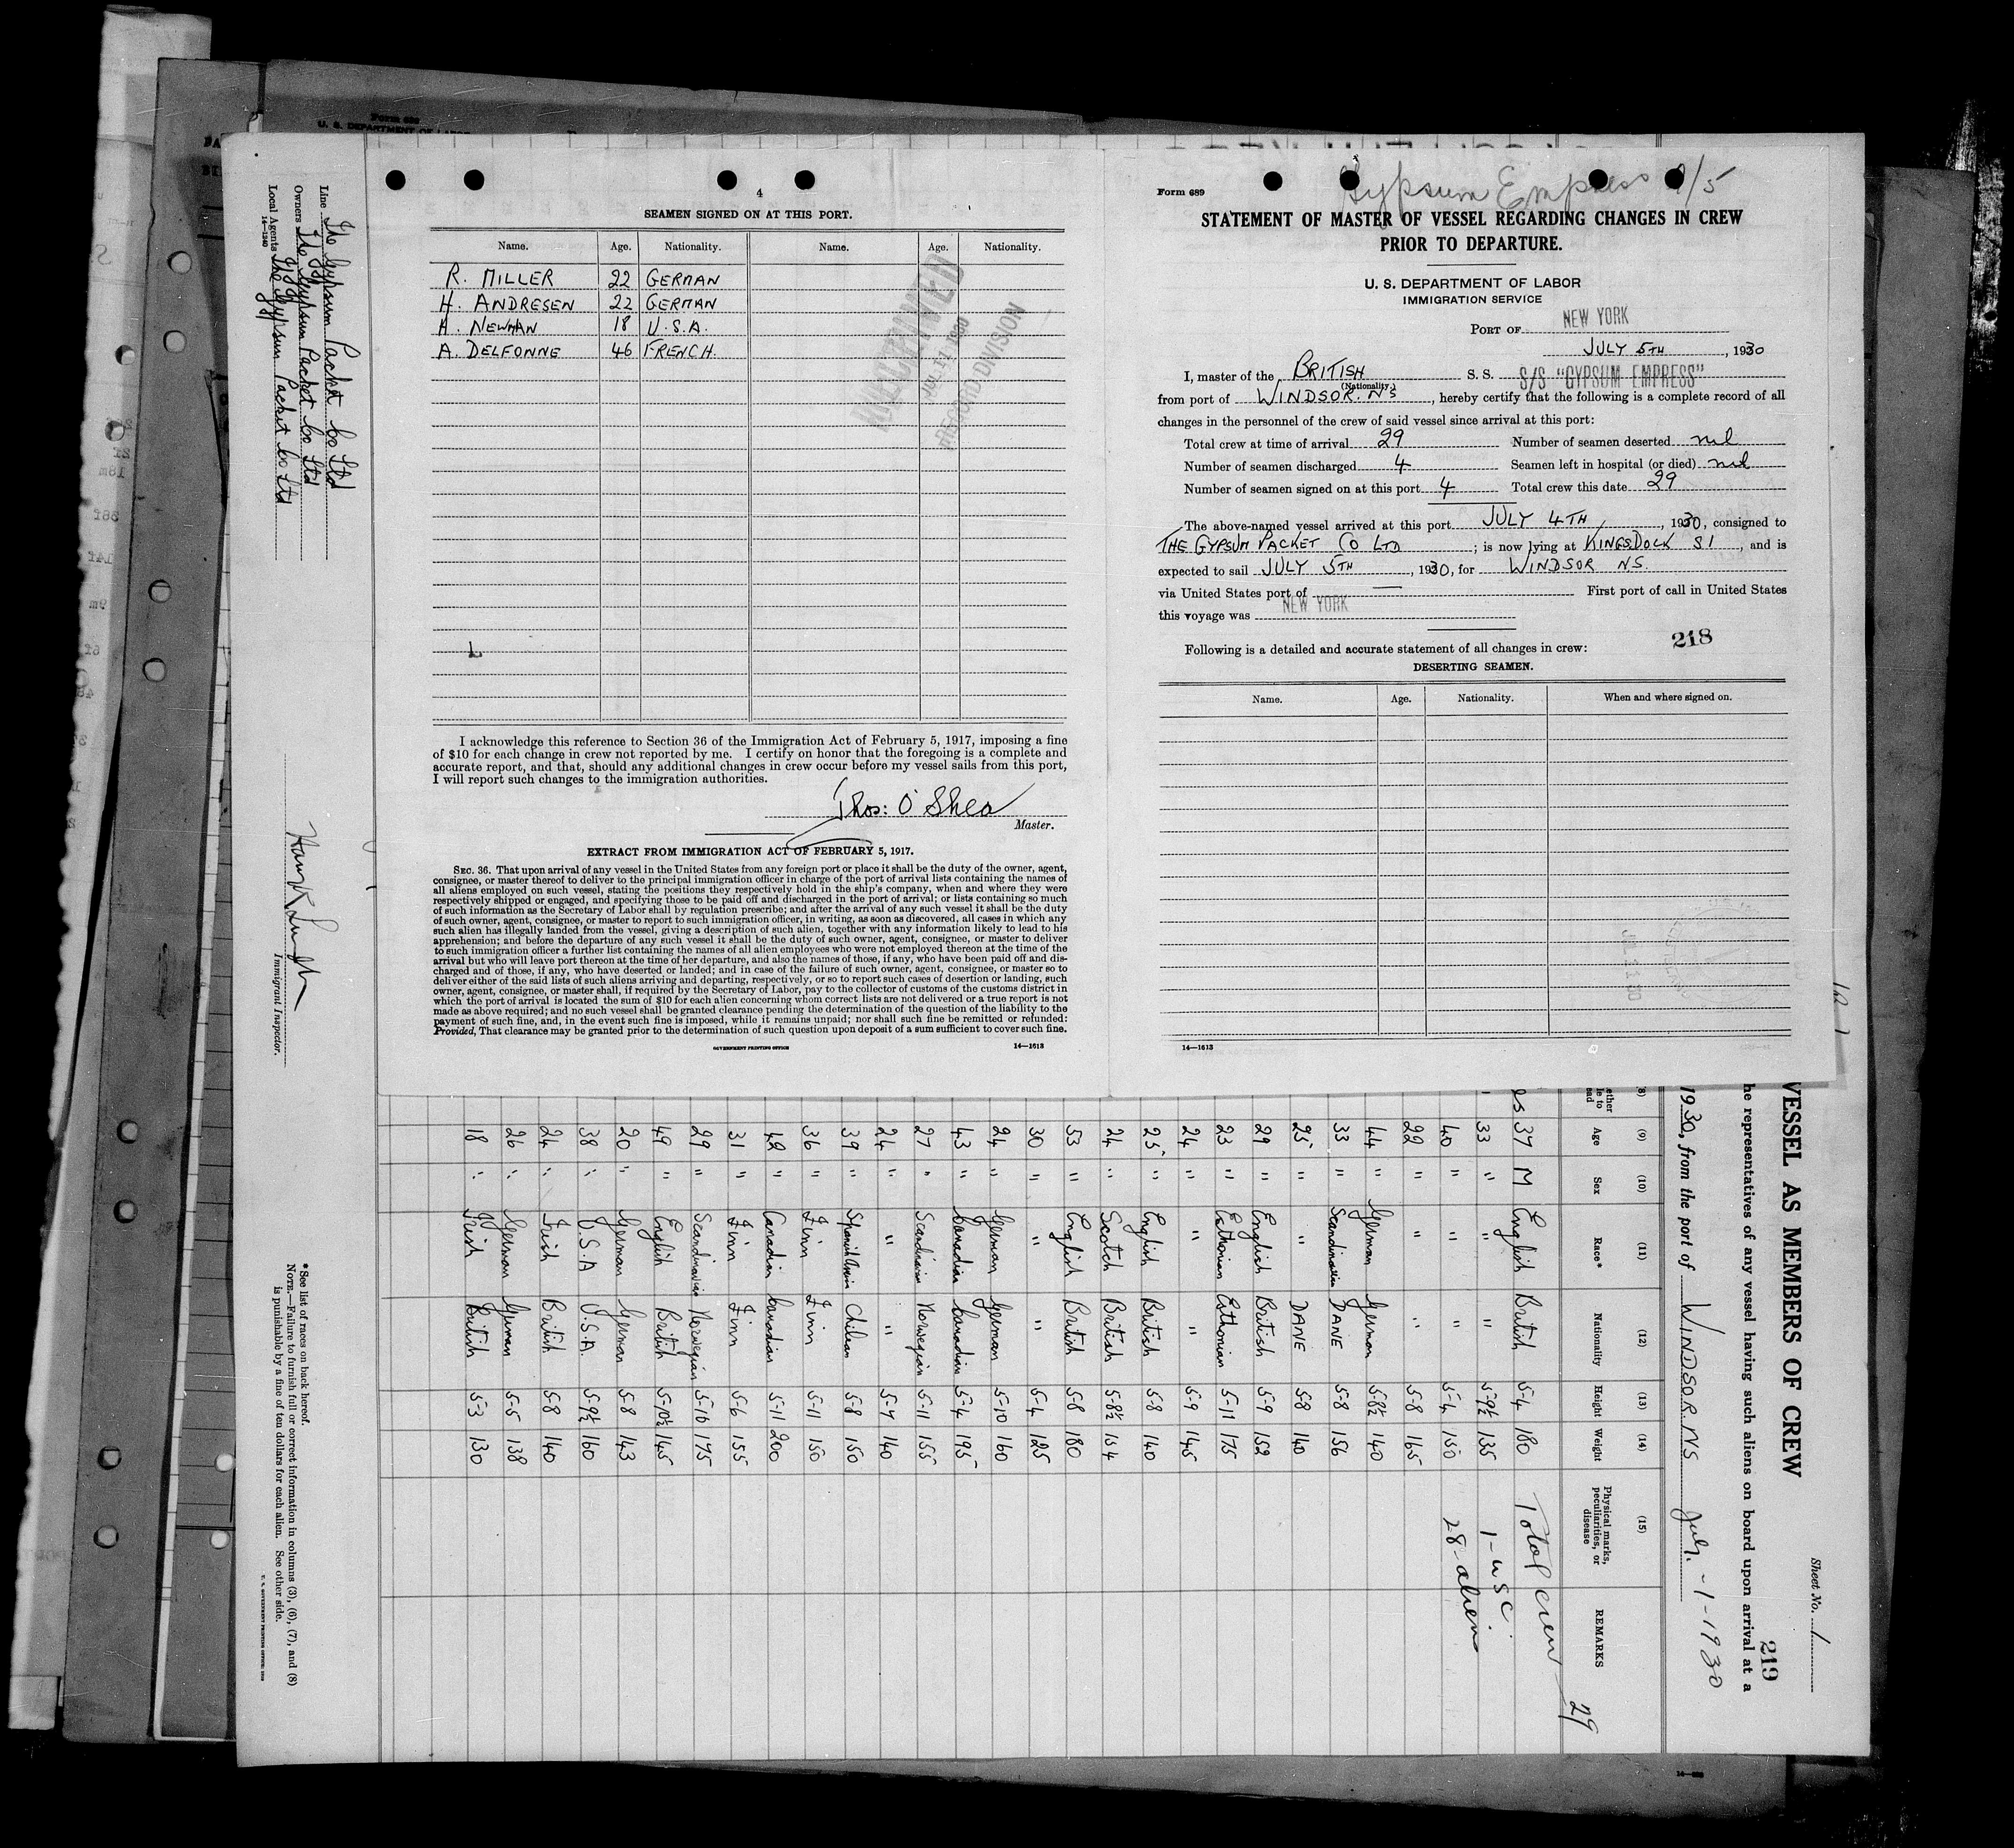 4
SEAMEN SIGNED ON AT THIS PORT.
Name. Age. Nationality. Name. Age. Nationality.
R. MILLER 22 GERMAN
H. ANDRESEN 22 GERMAN
H. NEWMAN 18 U.S.A.
A. DELFONNE 46 FRENCH.
RECORD DIVISION
I acknowledge this reference to Section 36 of the Immigration Act of February 5, 1917, imposing a fine
of $10 for each change in crew not reported by me. I certify on honor that the foregoing is a complete and
accurate report, and that, should any additional changes in crew occur before my vessel sails from this port,
I will report such changes to the immigration authorities.
Thos: O'Shea
Master.
EXTRACT FROM IMMIGRATION ACT OF FEBRUARY 5, 1917.
SEC. 36. That upon arrival of any vessel in the United States from any foreign port or place it shall be the duty of the owner, agent,
consignee, or master thereof to deliver to the principal immigration officer in charge of the port of arrival lists containing the names of
all aliens employed on such vessel, stating the positions they respectively hold in the ship's company, when and where they were
respectively shipped or engaged, and specifying those to be paid off and discharged in the port of arrival; or lists containing so much
of such information as the Secretary of Labor shall by regulation prescribe; and after the arrival of any such vessel it shall be the duty
of such owner, agent, consignee, or master to report to such immigration officer, in writing, as soon as discovered, all cases in which any
such alien has illegally landed from the vessel, giving a description of such alien, together with any information likely to lead to his
apprehension; and before the departure of any such vessel it shall be the duty of such owner, agent, consignee, or master to deliver
to such immigration officer a further list containing the names of all alien employees who were not employed thereon at the time of the
arrival but who will leave port thereon at the time of her departure, and also the names of those, if any, who have been paid off and dis-
charged and of those, if any, who have deserted or landed; and in case of the failure of such owner, agent, consignee, or master so to
deliver either of the said lists of such aliens arriving and departing, respectively, or so to report such cases of desertion or landing, such
owner, agent, consignee, or master shall, if required by the Secretary of Labor, pay to the collector of customs of the customs district in
which the port of arrival is located the sum of $10 for each alien concerning whom correct lists are not delivered or a true report is not
made as above required; and no such vessel shall be granted clearance pending the determination of the question of the liability to the
payment of such fine, and, in the event such fine is imposed, while it remains unpaid; nor shall such fine be remitted or refunded:
Provided, That clearance may be granted prior to the determination of such question upon deposit of a sum sufficient to cover such fine.
GOVERNMENT PRINTING OFFICE 14—1613
Gypsum Empress 7/5
Form 689
STATEMENT OF MASTER OF VESSEL REGARDING CHANGES IN CREW
PRIOR TO DEPARTURE.
U. S. DEPARTMENT OF LABOR
IMMIGRATION SERVICE
PORT OF NEW YORK
JULY 5TH, 1930
I, master of the BRITISH S. S. S/S "GYPSUM EMPRESS"
(Nationality.)
from port of WINDSOR. NS, hereby certify that the following is a complete record of all
changes in the personnel of the crew of said vessel since arrival at this port:
Total crew at time of arrival 29 Number of seamen deserted nil
Number of seamen discharged 4 Seamen left in hospital (or died) nil
Number of seamen signed on at this port 4 Total crew this date 29
The above-named vessel arrived at this port JULY 4TH, 1930, consigned to
THE GYPSUM PACKET CO LTD; is now lying at KINGSDOCK SI, and is
expected to sail JULY 5TH, 1930, for WINDSOR NS.
via United States port of — First port of call in United States
this voyage was NEW YORK
218
Following is a detailed and accurate statement of all changes in crew:
DESERTING SEAMEN.
Name. Age. Nationality. When and where signed on.
14—1613
Line The Gypsum Packet Co Ltd
Owners The Gypsum Packet Co Ltd
Local Agents The Gypsum Packet Co Ltd
14—1240
Immigrant Inspector.
*See list of races on back hereof.
NOTE.—Failure to furnish full or correct information in columns (3), (6), (7), and (8)
is punishable by a fine of ten dollars for each alien. See other side.
Sheet No. 1
219
VESSEL AS MEMBERS OF CREW
he representatives of any vessel having such aliens on board upon arrival at a
1930, from the port of WINDSOR. NS July - 1 - 1930
(9) (10) (11) (12) (13) (14) (15)
Age Sex Race* Nationality Height Weight Physical marks, peculiarities, or disease REMARKS
37 M English British 5-4 180 Total crew — 29
33 " " " 5-9½ 135 1 - usc
40 " " " 5-4 150 28 - alien
22 " " " 5-8 165
44 " German German 5-8½ 140
33 " Scandinavian DANE 5-8 156
25 " " DANE 5-8 140
29 " English British 5-9 152
23 " Esthonian Esthonian 5-11 175
24 " " " 5-9 145
25 " English British 5-8 140
24 " Scotch British 5-8½ 154
53 " English British 5-8 180
30 " " " 5-4 125
24 " German German 5-10 160
43 " Canadian Canadian 5-4 195
27 " Scandinavian Norwegian 5-11 155
24 " " " 5-7 140
39 " Chilian 5-8 150
36 " Finn Finn 5-11 150
42 " Canadian Canadian 5-11 200
31 " Finn Finn 5-6 155
29 " Scandinavian Norwegian 5-10 175
49 " English British 5-10½ 145
20 " German German 5-8 143
38 " U.S.A U.S.A. 5-9½ 160
24 " Irish British 5-8 140
26 " German German 5-5 138
18 " Irish British 5-3 130